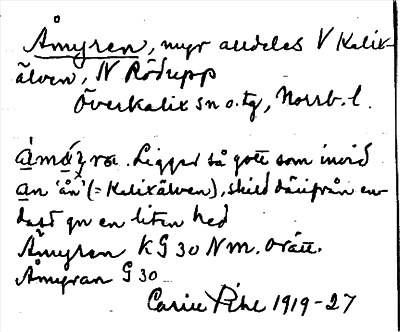 Åmyren, myr alldeles V Kalix-
älven, N Rödupp
Överkalix sn o. tg, Norrb. l.
Ligger så gott som invid
an 'ån' (= Kalixälven), skild därifrån en-
dast gm en liten hed
Åmyren KG 30 Nm. orätt.
Åmyran G 30
Carin Pihl 1919-27